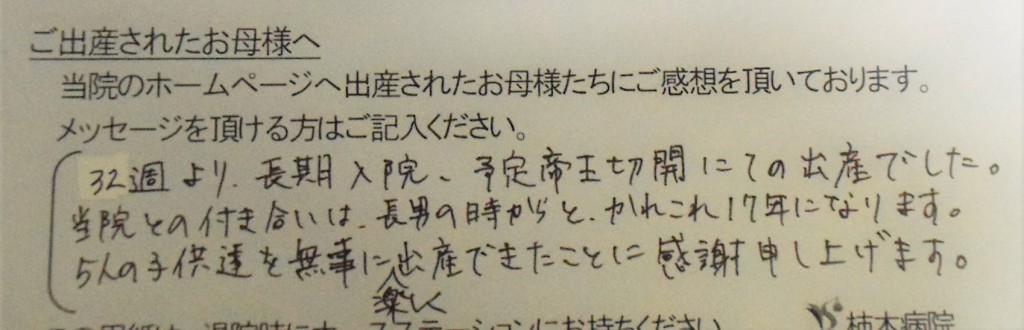 ご出産されたお母様へ
当院のホームページへ出産されたお母様たちにご感想を頂いております。
メッセージを頂ける方はご記入ください。
32週より、長期入院、予定帝王切開にての出産でした。
当院との付き合いは、長男の時からと、かれこれ17年になります。
5人の子供達を無事に出産できたことに感謝申し上げます。
楽しく
この用紙は、退院時にナースステーションにお持ちください
柿本病院